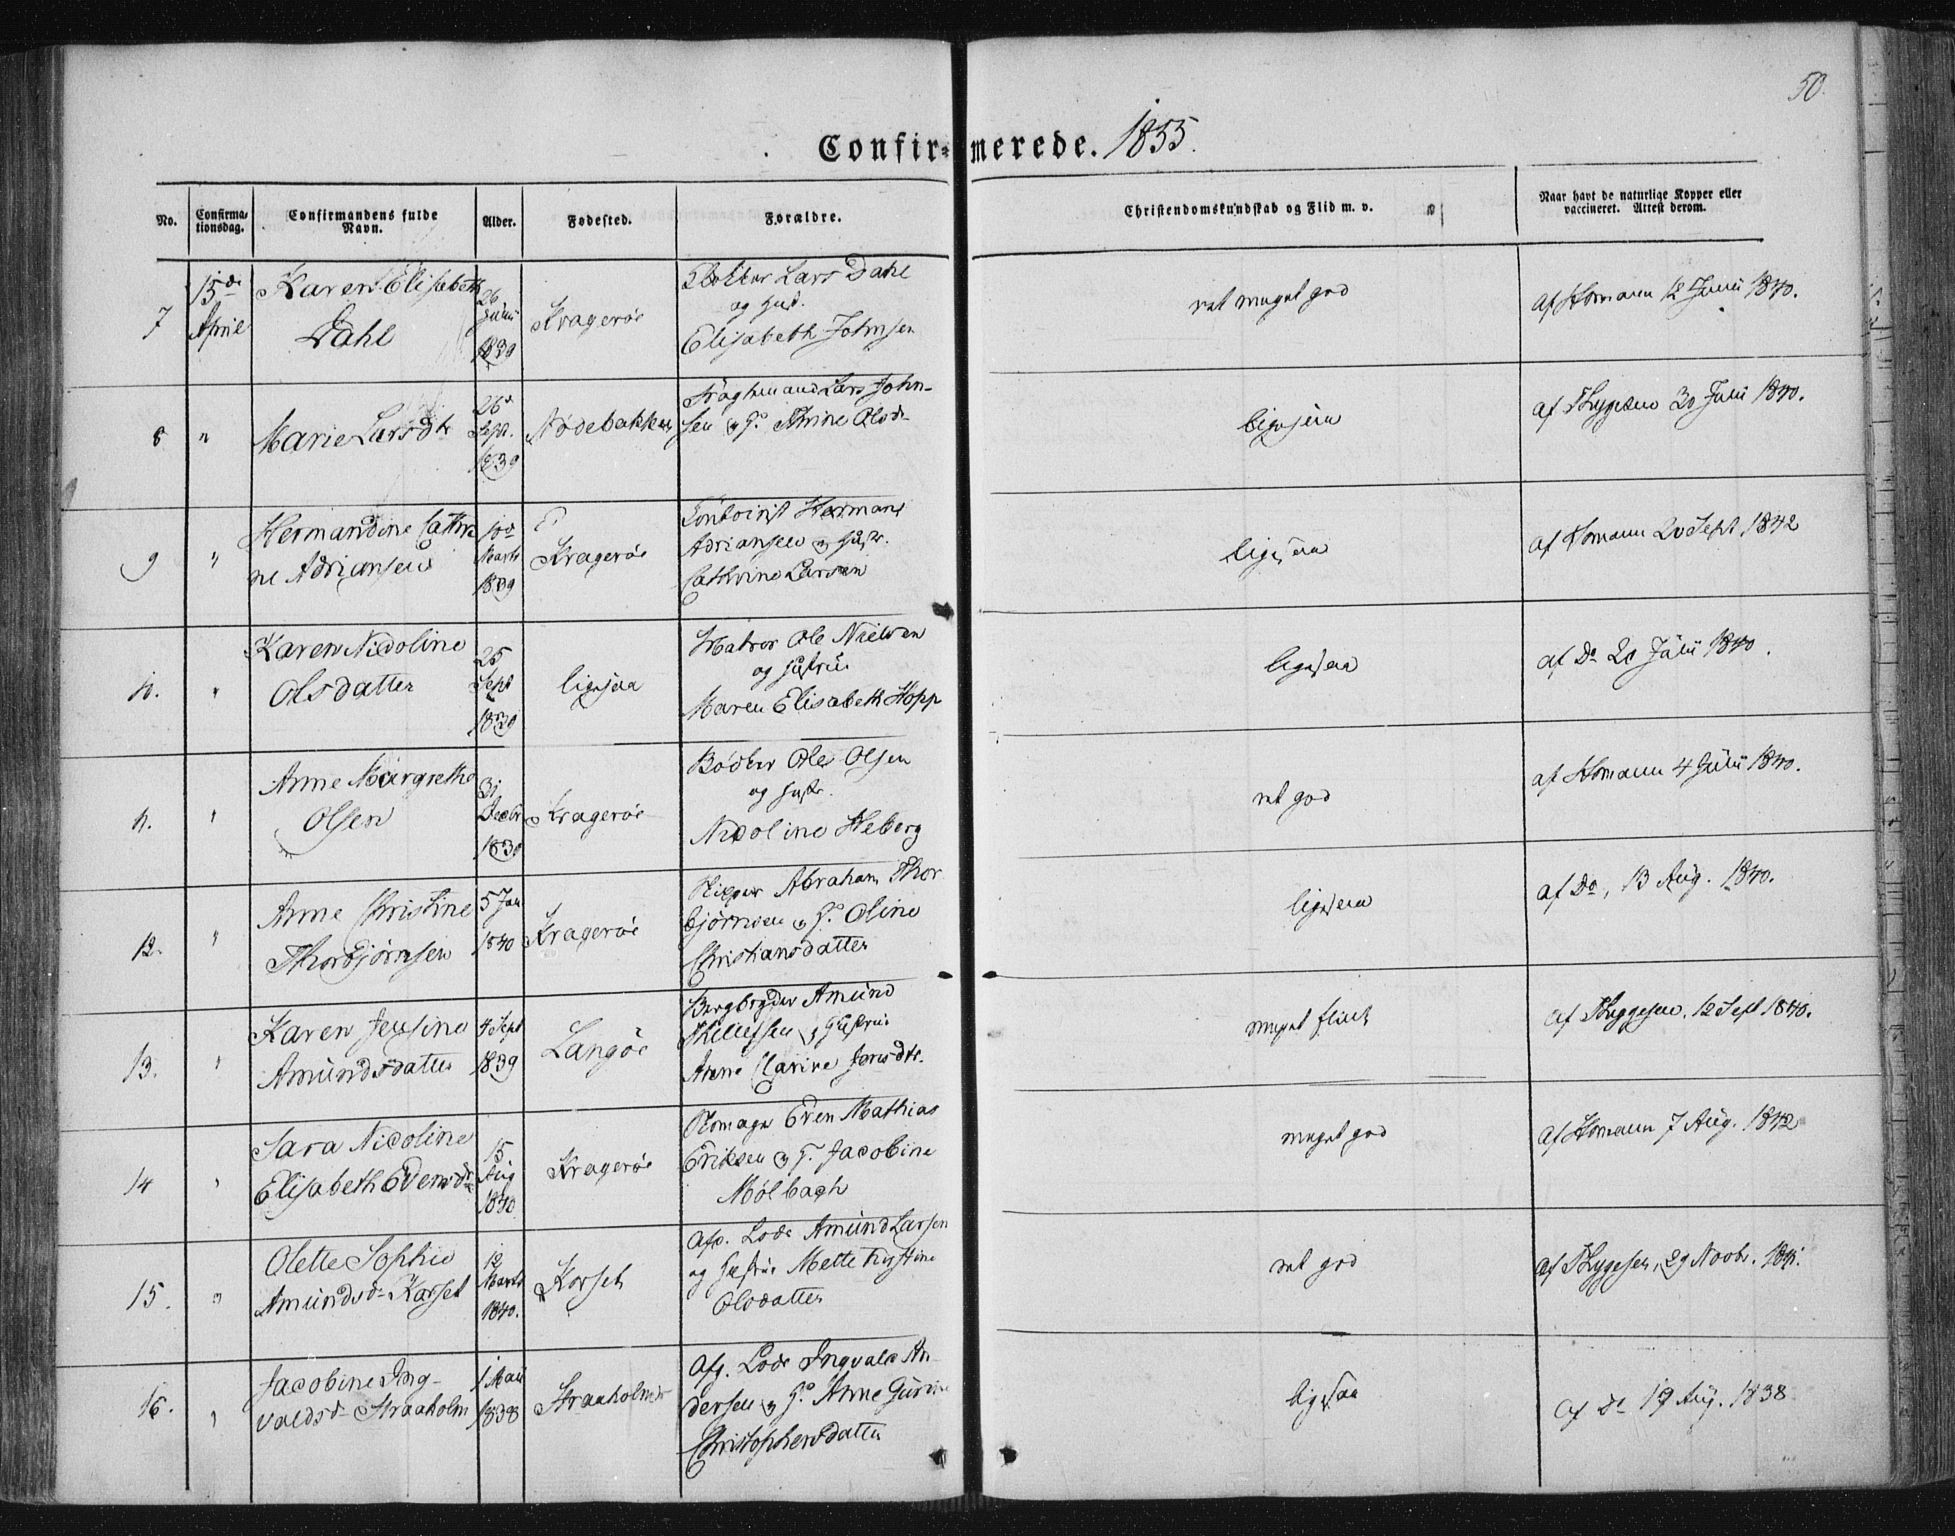 50.
Confir- merede. 1855.
No.
Confirma-
tionsdag.
Confirmandens fulde
Navn.
Alder.
Fødested.
Forældre.
Christendomskundskab og Flid m. v.
Naar havt de naturlige Kopper eller
vaccineret. Attest derom.
7
15de
April
Karen Elisabeth
Dahl
26
Junii
1839
Kragerøe
Lars Dahl
og
Elisabeth Johnsen
ret meget god
af Homann 12 Junii 1840.
8
"
Marie Larsdtr
26de
Sept.
1839
Nødebakken
Lars John-
sen og Thrine Olsdr
ligesaa
af Thygesen 30 Julii 1840.
9
"
Hermandine Cathri
ne Adriansen
10de
Marts
1839
Kragerøe
Hermans
Adriansen og
Cathrine Larsen
ligesaa
af Homann 20 Sept 1842
10.
"
Karen Nicoline
Olsdatter
25
Sept
1839
ligesaa
Matros Ole Nielsen
og Hustrue
Maren Elisabeth Hopp
ligesaa
af Do 20 Julii 1840.
11.
"
Anne Margrethe
Olsen
31
Decbr
1839
Kragerøe
Bødker Ole Olsen
og Hustr.
Nicoline Heberg
ret god
af Homann 4 Julii 1840.
12.
"
Anne Christine
Thorbjørnsen
5 Jan
1840
Kragerøe
Skipper Abraham Thor
bjørnsen og H. Oline
Christiansdatter
ligesaa
af Do, 13 Aug. 1840.
13.
"
Karen Jensine
Amundsdatter
4 Sept
1839
Langøe
Bergbryder Amund
Thillefsen og Hustrue
Anne Clarine Jensdtr.
meget flink
af Thygesen, 12 Sept 1840.
14
"
Sara Nicoline
Elisabeth Evensdr
15
Aug
1840
Kragerøe
Even Mathias
Eriksen og H. Jacobine
Mølbach
meget god
af Homann 7 Aug. 1842
15.
"
Olette Sophie
Amundsdr Karset
12
Marts
1840.
Korset
Afg. Lods Amund Larsen
og Hustrue Mette Kirstine
Olsdatter
ret god
af Thygesen, 29 Novbr.
16.
"
Jacobine Ing-
valdsdr Straaholm
1 Mai
1838
Straaholmen
Afg. Lods Ingvald An-
dersen og H. Anne Gurine
Christophersdatter
ligesaa
af Do 19 Aug. 1838